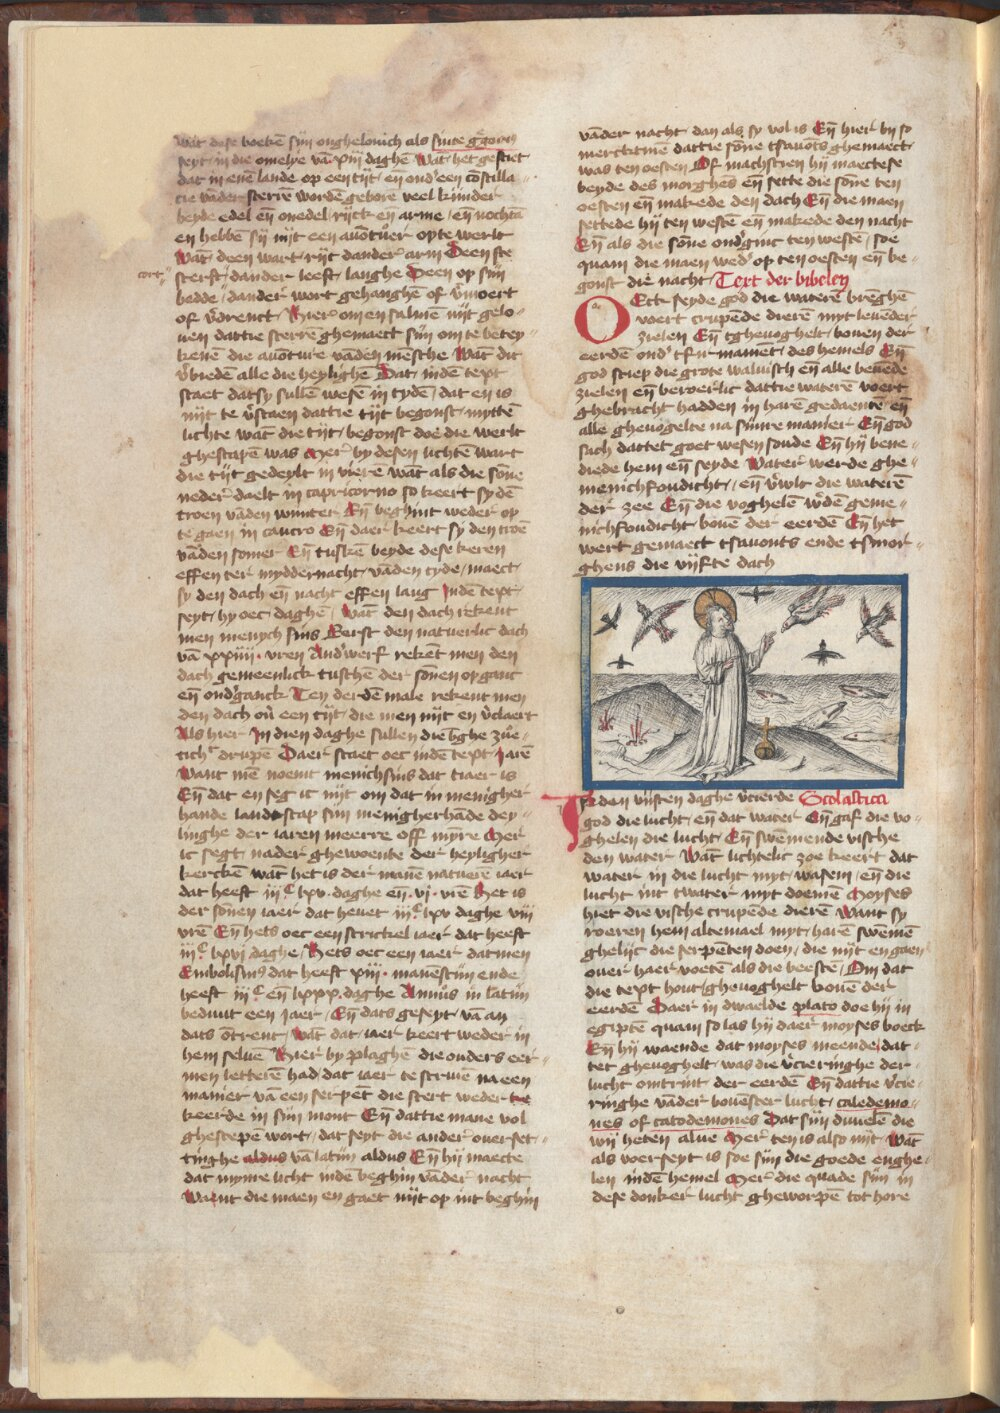 wāt dese boekē sijn onghelouich als sinte grōri⁹
seyt in die omelye vā xiij daghē Wāt het gesciet
dat in enē lande op een tijt eñ ond' een cōstilla
cie vāder sterrē wordē gebore veel kinder
beyde edel eñ onedel rijck en arme eñ nochtā
en hebbē sij nijt een auōtuer op te werlt
Wāt deen wart rijt dander arm Deen ste
cort
sterft dander leeft langhe Deen op sijn
bedde dander wort gehanghē of vmoert
of vdrenct Hier om en salmē nijt gelo
uen dattie sterrē ghemaect sijn om te betey
kenē die auōture vāden mēsche Wāt dit
vbiedē alle die heylighē Dat indē text
staet dat sy sullē wesē in tydē dat en is
nijt te vstaen dattie tijt begonst myttē
lichte wāt die tijt begonst doe die werlt
ghescapē was Mer by desen lichtē wart
die tijt gedeylt in vierē wāt als die sōne
neder daelt in capricorno so keert sy dē
troen vāden winter Eñ beghint weder op
te gaen in cancro Eñ daer keert sy den troē
vāden somer Eñ tuskē beyde dese keren
effen ter myddernacht vāden tyde maect
sy den dach eñ nacht effen lang Indē text
seyt hy oec daghē Wāt den dach rekent
men menych sins Eerst den natuerlic dach
vā xxiiij vren And'werf rekēt men den
dach gemeenlick tusschē der sōnen opganc
eñ ond'ganck Ten derdē male rekent men
den dach oū een tijt die men nijt en vclaert
Als hier In dien daghe sullen die bghe zue
ticht drupē Daer staet oec indē text Jarē
Want mē noemt menichsins dat tiaer is
Eñ dat en seg ic nijt om dat in menigher
hande landscap sijn menigherhāde dey
linghe der iaren meerre off mynre Mer
ic segt nader ghewoente der heyligher
kerckē wāt het is der manē natuere iaer
dat heeft iijc lxv daghe eñ vi vrē Het is
der sōnen iaer dat heuet iijc lxv daghe viij
vrē Eñ hets oec een strickel iaer dat heeft
iijc lxvi daghe Hets oec een iaer datmen
Embolism⁹ dat heeft xiij manescijn ende
heeft iijc eñ lxxx daghe Annus in latijn
beduut een jaer Eñ dats geseyt vā an
dats ōtrent Wāt dat iaer keert weder in
hem seluē Hier by plaghē die ouders eer
men letterē had dat iaer te scriuē na een
manier vā een serpēt die stert weder
keerde in sijn mont Eñ dattie mane vol
ghescepē wort dat seyt die ander ouerset
tinghe aldus vā latijn aldus Eñ hij maecte
dat mynre licht indē beghin vāder nacht
Wamt die maen en gaet nijt op int beghin
vāder nacht dan als sy vol is Eñ hier bij so
mercktmē dattie sōne tsauōts ghemaect
was ten oesten Of machscien hij maectese
beyde des morghēs eñ sette die sōne ten
oesten eñ makede den dach Eñ die maen
settede hij ten westē eñ makede den nacht
Eñ als die sōne ond'ginc ten westē soe
quam die maen wed' op ten oesten eñ be
gonst die nacht Text der bibelen
OEck seyde god die waterē brēghē
voert crupēde dierē myt leuēder
zielen Eñ tgheuoghelt bouen der
eerdē ond' tfirmamēt des hemels Eñ
god sciep die grote waluisch eñ alle beuēde
zielen eñ beroerlic dattie waterē voert
ghebracht hadden in harē gedaentē eñ
alle gheuogelte na sijnre manier Eñ god
sach dattet goet wesen soude Eñ hij bene
diede hem eñ seyde Water werde ghe
menichfoudicht eñ vwlt die waterē
der zee Eñ die voghelē wdē geme
nichfoudicht bouē der eerdē Eñ het
wert gemaect tsauonts ende tsmor
ghens die vijfte dach
Inden vijften daghe vcierde Scolastica
god die lucht eñ dat water Eñ gaf die vo
ghelen die lucht Eñ swēmende vische
den water Wāt lichtelic zoe keert dat
water in die lucht myt wasem eñ die
lucht int twater myt doemē Moyses
hiet die vische crupēde dierē Want sy
roeren hem altemael myt harē swēmē
ghelijc die serpēten doen die nijt en gaen
ouer haer voetē als die beestē Om dat
die text hout gheuoghelt bouē der
eerdē Daer in dwaelde plato doe hij in
egiptē quam so las hij daer moyses boeck
Eñ hij waende dat moyses meende dat
tet gheuoghelt was die vcieringhe der
lucht omtrint der eerdē Eñ dattie vcie
ringhe vāder bouēster lucht caledemo
nes of catodemones Dat sijn duuelē die
wij heten alue Mer ten is also nijt Wāt
als voerseyt is soe sijn die goede enghe
len indē hemel Mer die quade sijn in
dese donker lucht gheworpē tot hore